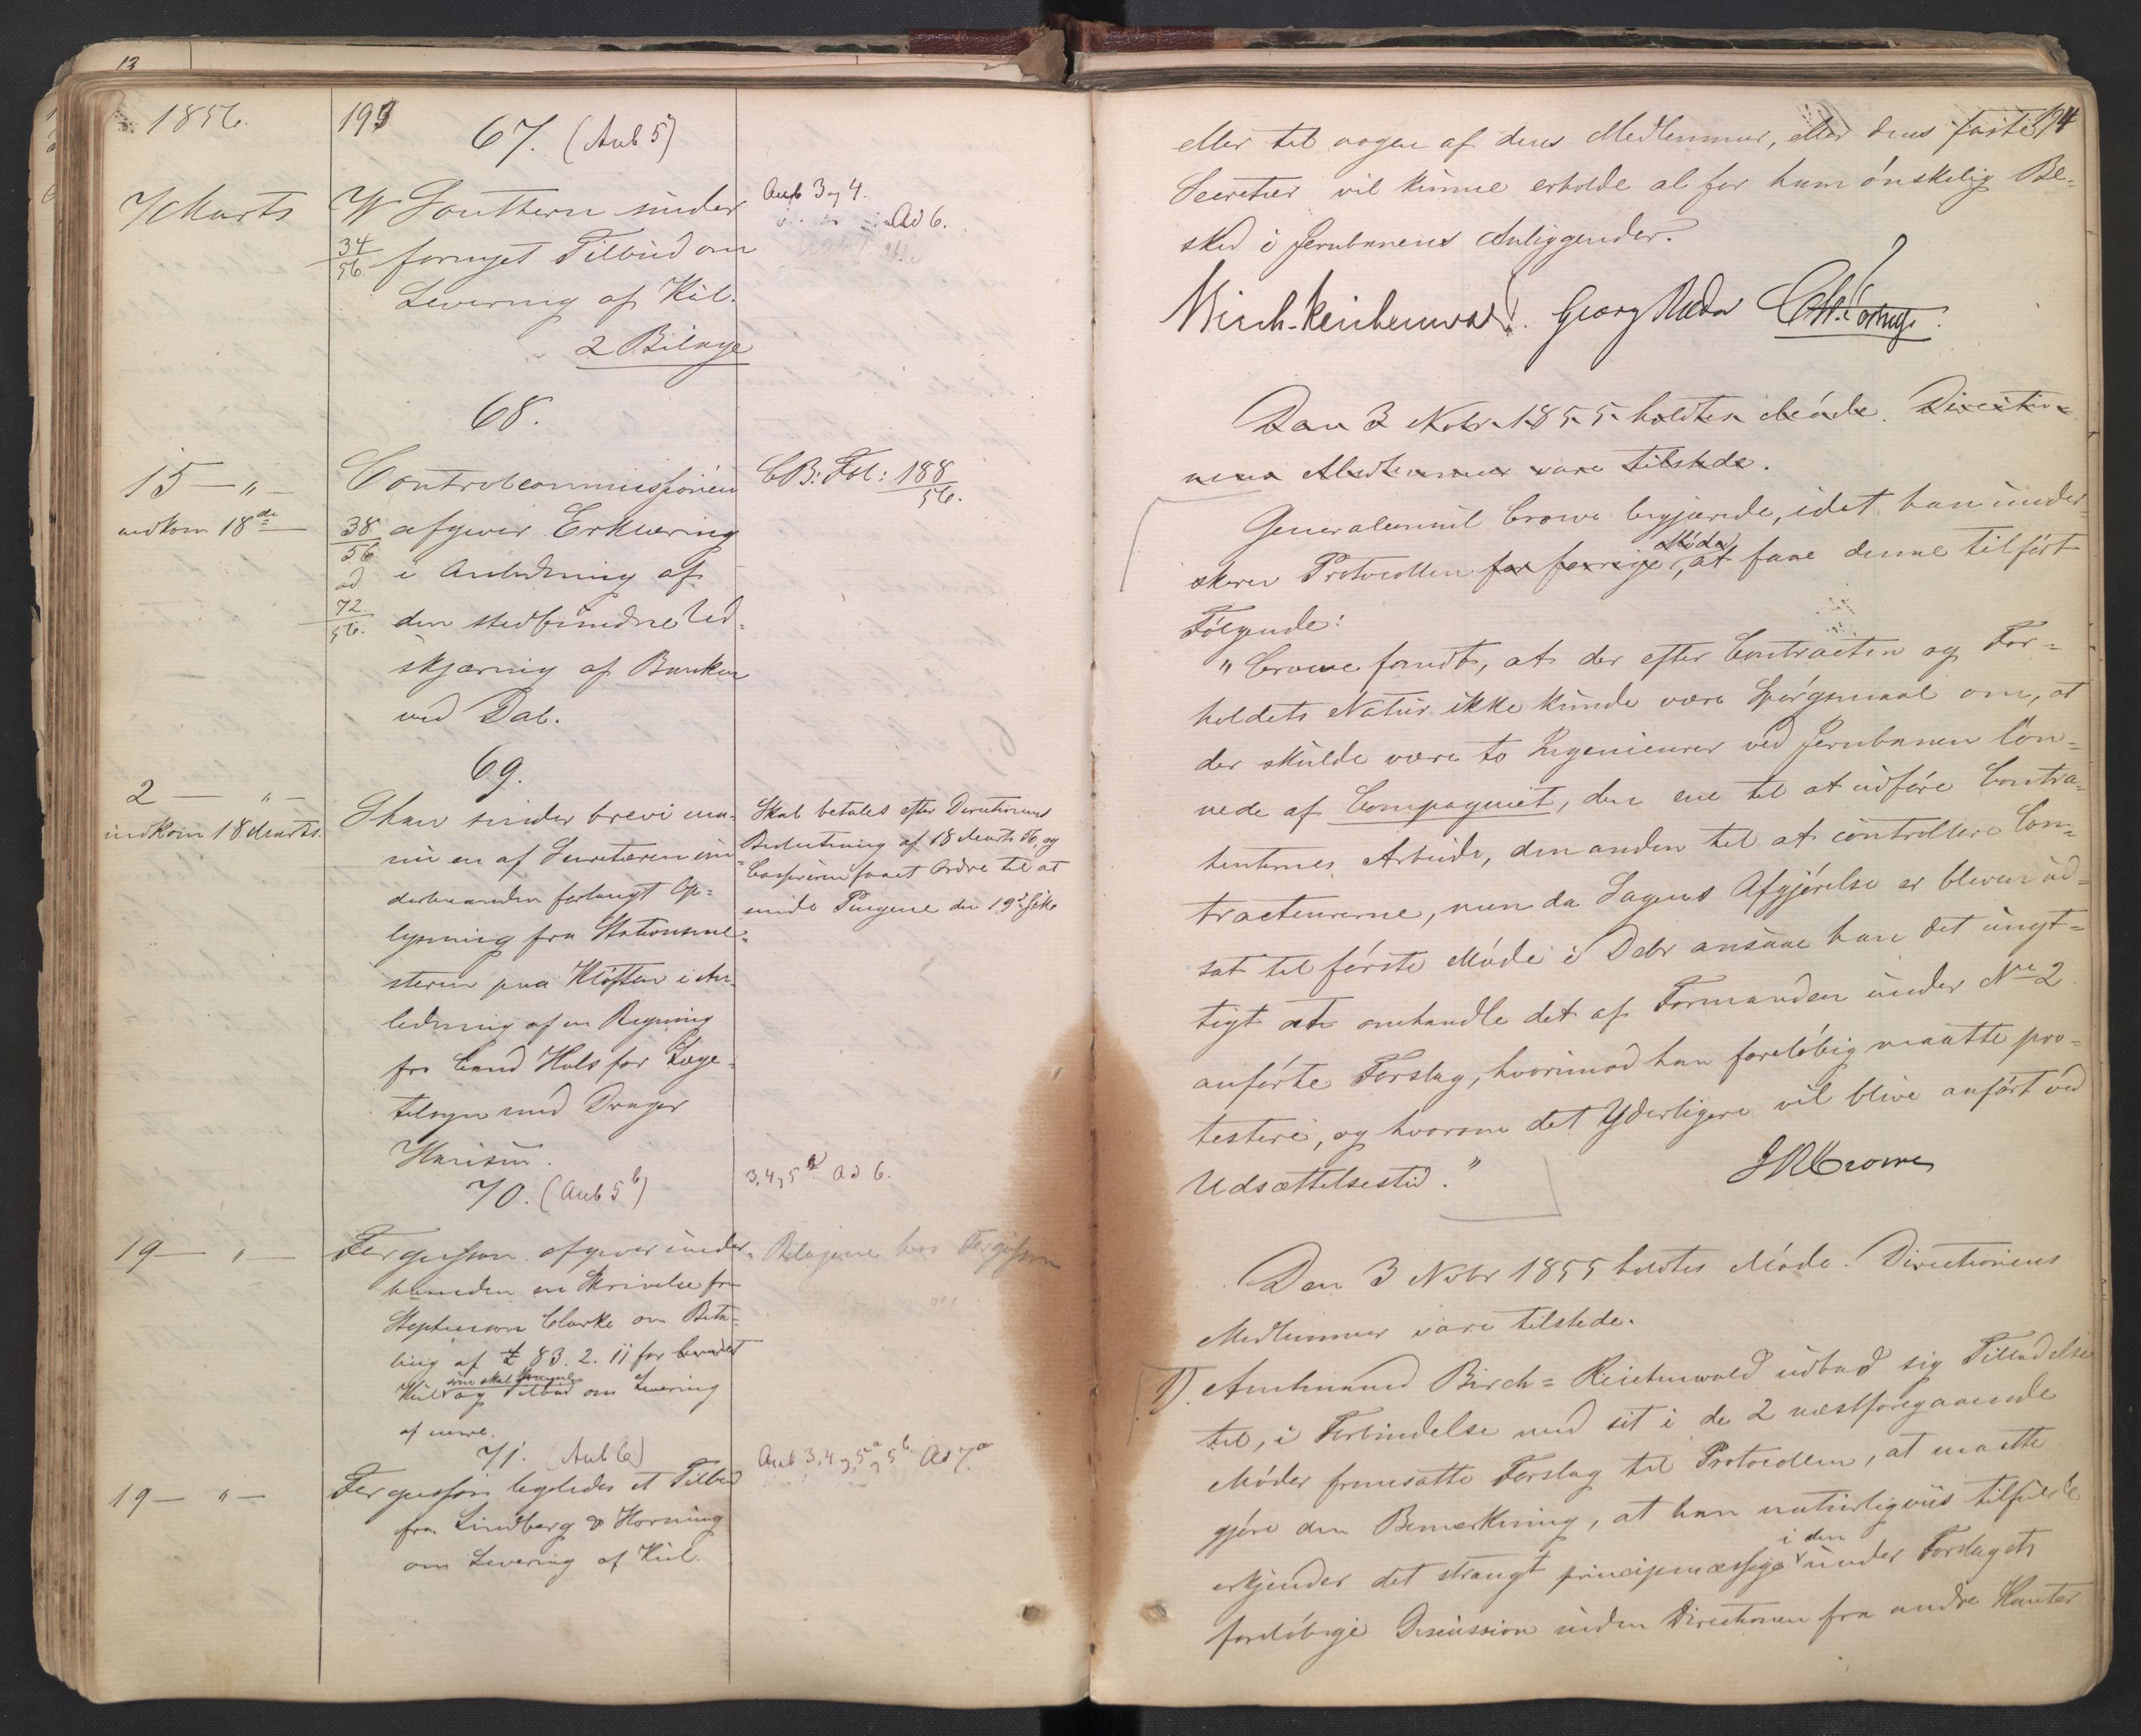 13
1856.
193
67. (Anb 5)
7 Marts
W Southern sender
34/56. fornyet Tilbud om
Levering af Kul.
2 Bilage
Anb 3 og 4.
Ad 6.
68.
15 — " —
indkom 18de
Controlcommissionen
38/56 afgiver Erklæring
ad i Anledning af
72/56. den stedfundne Ud-
skjæring af Banken
ved Dal.
CB: Fol: 188/56.
69.
2 — " —
indkom 18 Marts.
sender brevi ma-
nu en af Secretæren un-
derhaanden forlangt Op-
lysning fra Stationsme-
steren paa Kløften i An-
ledning af en Regning
fra Cand Hals for Læge-
tilsyn med Drager
Hansen.
Skal betales efter Directionens
Beslutning af 18 Marts 56, og
Casseren faaet Ordre til at
sende Pengene den 19de
70. (Anb 5b)
3, 4, 5a Ad 6.
19 — " —
Fergusson afgiver under-
haanden en Skrivelse fra
Stephenson Clarke om Beta-
ling af £ 83. 2. 11 for
Kul og Tilbud om Levering
af mere.
Bilagene hos Fergusson
71. (Anb 6)
Anb 3, 4 og 5a og 5b Ad 7a
19 — " —
Fergusson ledes et Tilbud
fra Lindberg & Horning
om Levering af Kul.
194
eller til nogen af dens Medlemmer, eller dens faste
Secretær vil kunne erholde al for ham ønskelig Be-
sked i Jernbanens Anliggender.
Birch-Reichenwald. Georg
Den 3 Nobr 1855 holdtes Møde. Directio-
nens Medlemmer vare tilstede.
Generalconsul Crowe begjærede, idet han under-
skrev Protocollen for forrige Møde, at faae denne tilført
Følgende:
"Crowe fandt, at der efter Contracten og For-
holdets Natur ikke kunde være Spørgsmaal om, at
der skulde være to Ingenieurer ved Jernbanen løn-
nede af Compagniet, den ene til at udføre Contra-
henternes Arbeide, den anden til at controllere Con-
tracteurerne, men da Sagens Afgjørelse er bleven ud-
sat til første Møde i Debr ansaae han det unyt-
tigt at omhandle det af Formanden under No 2
anførte Forslag, hvorimod han foreløbig maatte pro-
testere, og hvorom det Yderligere vil blive anført ved
Udsættelsestid."
JRCrowe
Den 3 Nobr 1855 holdtes Møde. Directionens
Medlemmer vare tilstede.
1). Amtmand Birch-Reichenwald udbad sig Tilladelse
til, i Forbindelse med sit i de 2 næstforegaaende
Møder fremsatte Forslag til Protocollen, at maatte
gjøre den Bemærkning, at han naturligviis tilfulde
erkjender det strengt principmæssige i den under Forslagets
foreløbige Discussion inden Directionen fra andre Kanter